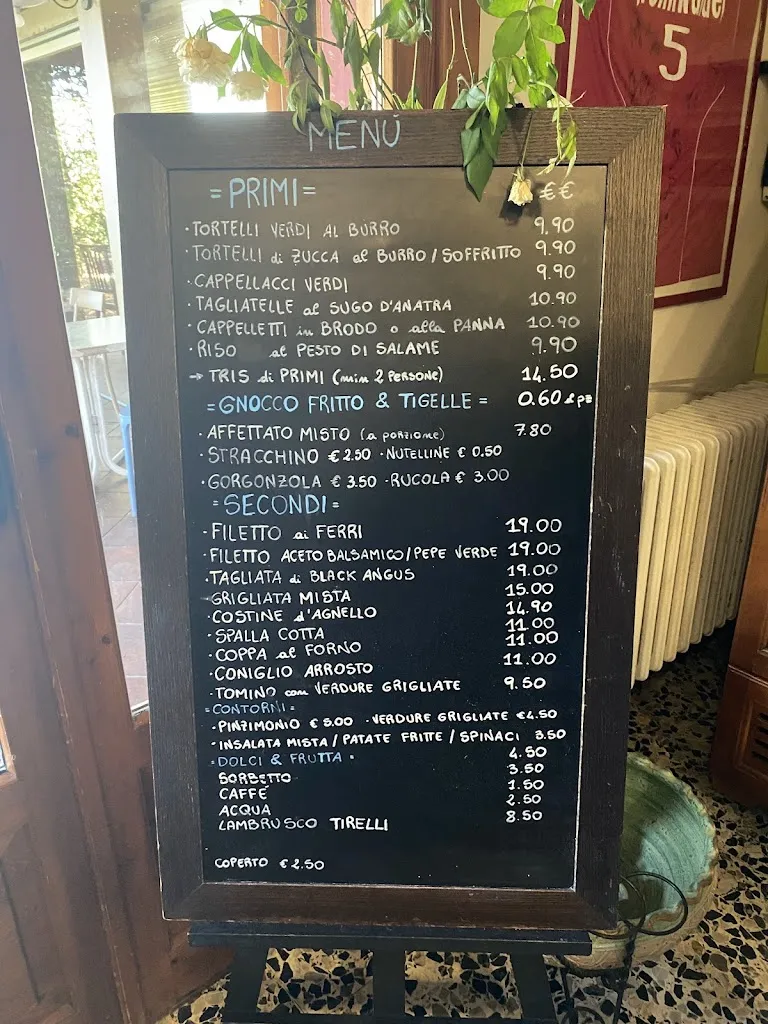 5
MENÚ
=PRIMI= €€
·TORTELLI VERDI AL BURRO 9.90
·TORTELLI di ZUCCA al BURRO/SOFFRITTO 9.90
·CAPPELLACCI VERDI 9.90
·TAGLIATELLE al SUGO D'ANATRA 10.90
·CAPPELLETTI in BRODO o alla PANNA 10.90
·RISO al PESTO DI SALAME 9.90
→ TRIS di PRIMI (min 2 PERSONE) 14.50
=GNOCCO FRITTO & TIGELLE= 0.60 al pz
·AFFETTATO MISTO (a porzione) 7.80
·STRACCHINO €2.50 ·NUTELLINE €0.50
·GORGONZOLA €3.50 ·RUCOLA €3.00
=SECONDI=
·FILETTO ai FERRI 19.00
·FILETTO ACETO BALSAMICO/PEPE VERDE 19.00
·TAGLIATA di BLACK ANGUS 19.00
·GRIGLIATA MISTA 15.00
·COSTINE d'AGNELLO 14.90
·SPALLA COTTA 11.00
·COPPA al FORNO 11.00
·CONIGLIO ARROSTO 11.00
·TOMINO con VERDURE GRIGLIATE 9.50
=CONTORNI=
·PINZIMONIO €5.00 ·VERDURE GRIGLIATE €4.50
·INSALATA MISTA/PATATE FRITTE/SPINACI 3.50
=DOLCI & FRUTTA= 4.50
SORBETTO 3.50
CAFFÉ 1.50
ACQUA 2.50
LAMBRUSCO TIRELLI 8.50
COPERTO €2.50